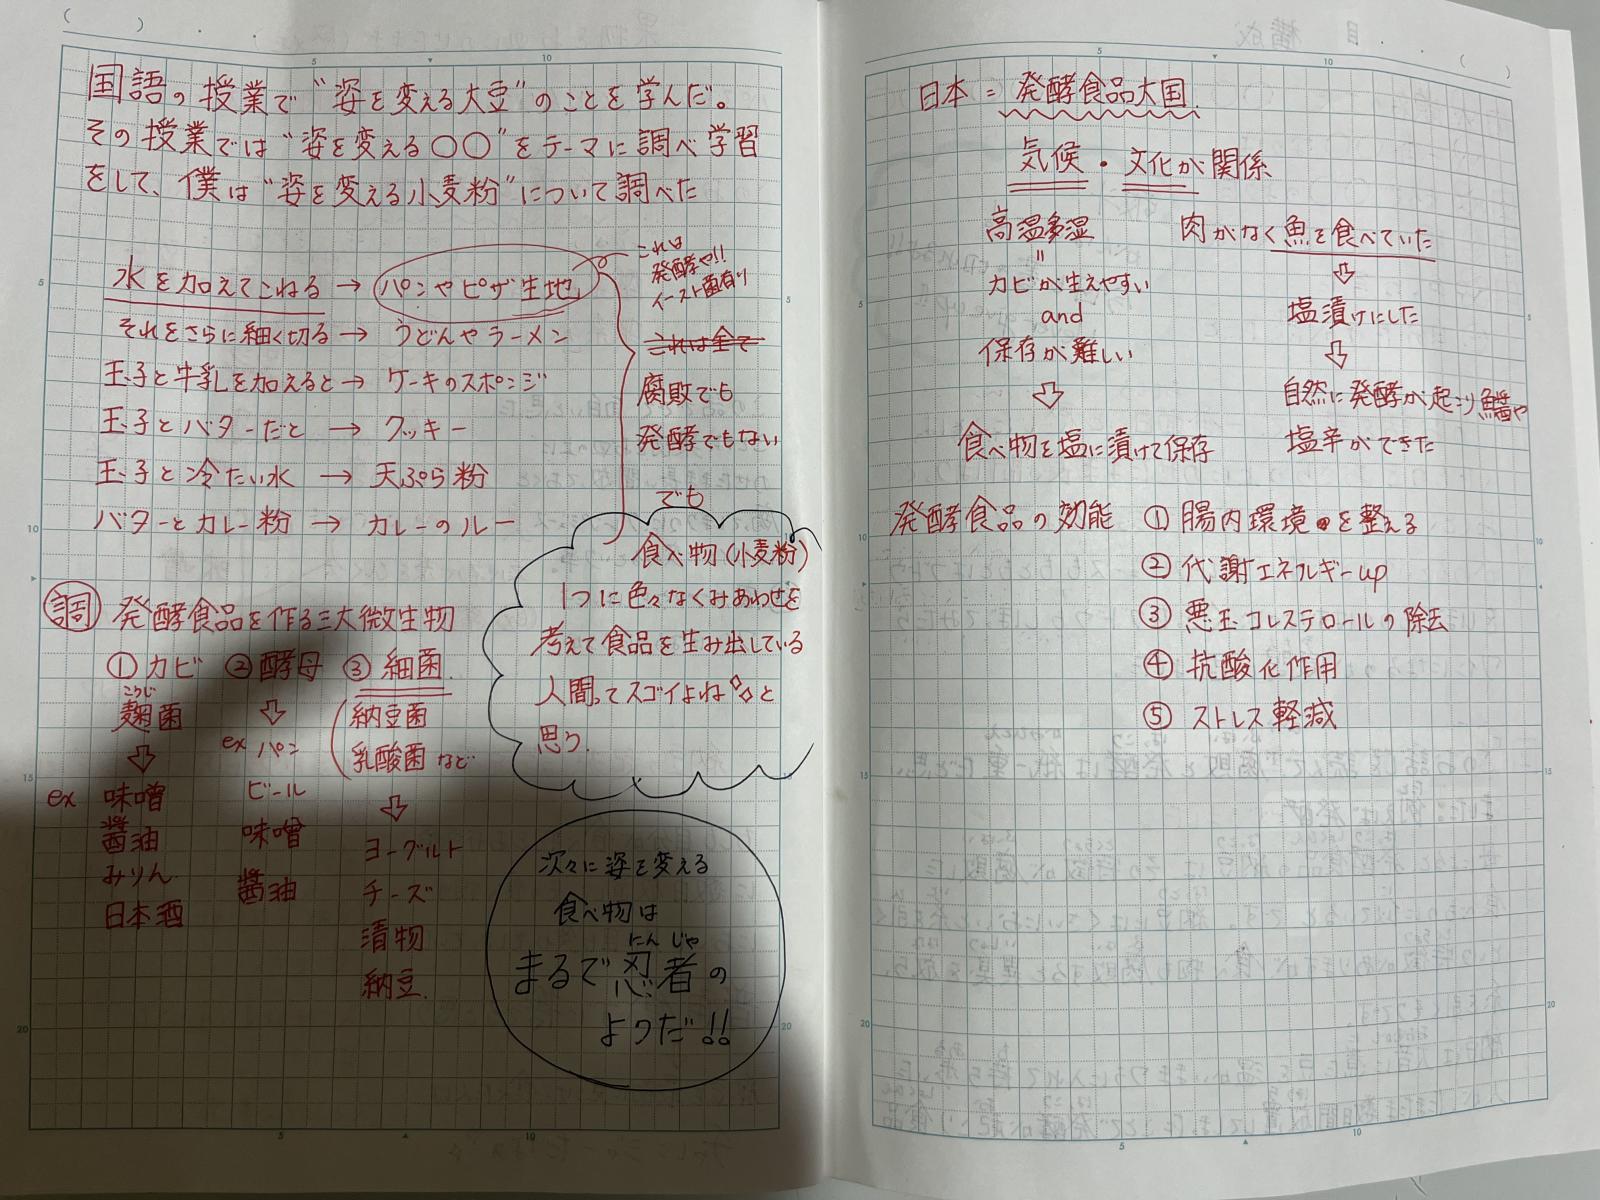 国語の授業で“姿を変える大豆”のことを学んだ。
その授業では“姿を変える〇〇”をテーマに調べ学習
をして、僕は“姿を変える小麦粉”について調べた
水を加えてこねる → パンやピザ生地
これは
発酵や!!
イースト菌有り
それをさらに細く切る → うどんやラーメン
玉子と牛乳を加えると → ケーキのスポンジ
玉子とバターだと → クッキー
玉子と冷たい水 → 天ぷら粉
バターとカレー粉 → カレーのルー
これは全て
腐敗でも
発酵でもない
でも
食べ物(小麦粉)
1つに色々なくみあわせを
考えて食品を生み出している
人間ってスゴイよね と
思う.
調 発酵食品を作る三大微生物
① カビ ② 酵母 ③ 細菌
こうじ
麹菌
納豆菌
乳酸菌 など
ex 味噌
醤油
みりん
日本酒
ex パン
ビール
味噌
醤油
ヨーグルト
チーズ
漬物
納豆
次々に姿を変える
食べ物は
にんじゃ
まるで忍者の
ようだ!!
日本 = 発酵食品大国
気候・文化が関係
高温多湿
=
カビが生えやすい
and
保存が難しい
食べ物を塩に漬けて保存
肉がなく魚を食べていた
塩漬けにした
自然に発酵が起こり
塩辛ができた
発酵食品の効能 ① 腸内環境を整える
② 代謝エネルギーup
③ 悪玉コレステロールの除去
④ 抗酸化作用
⑤ ストレス軽減